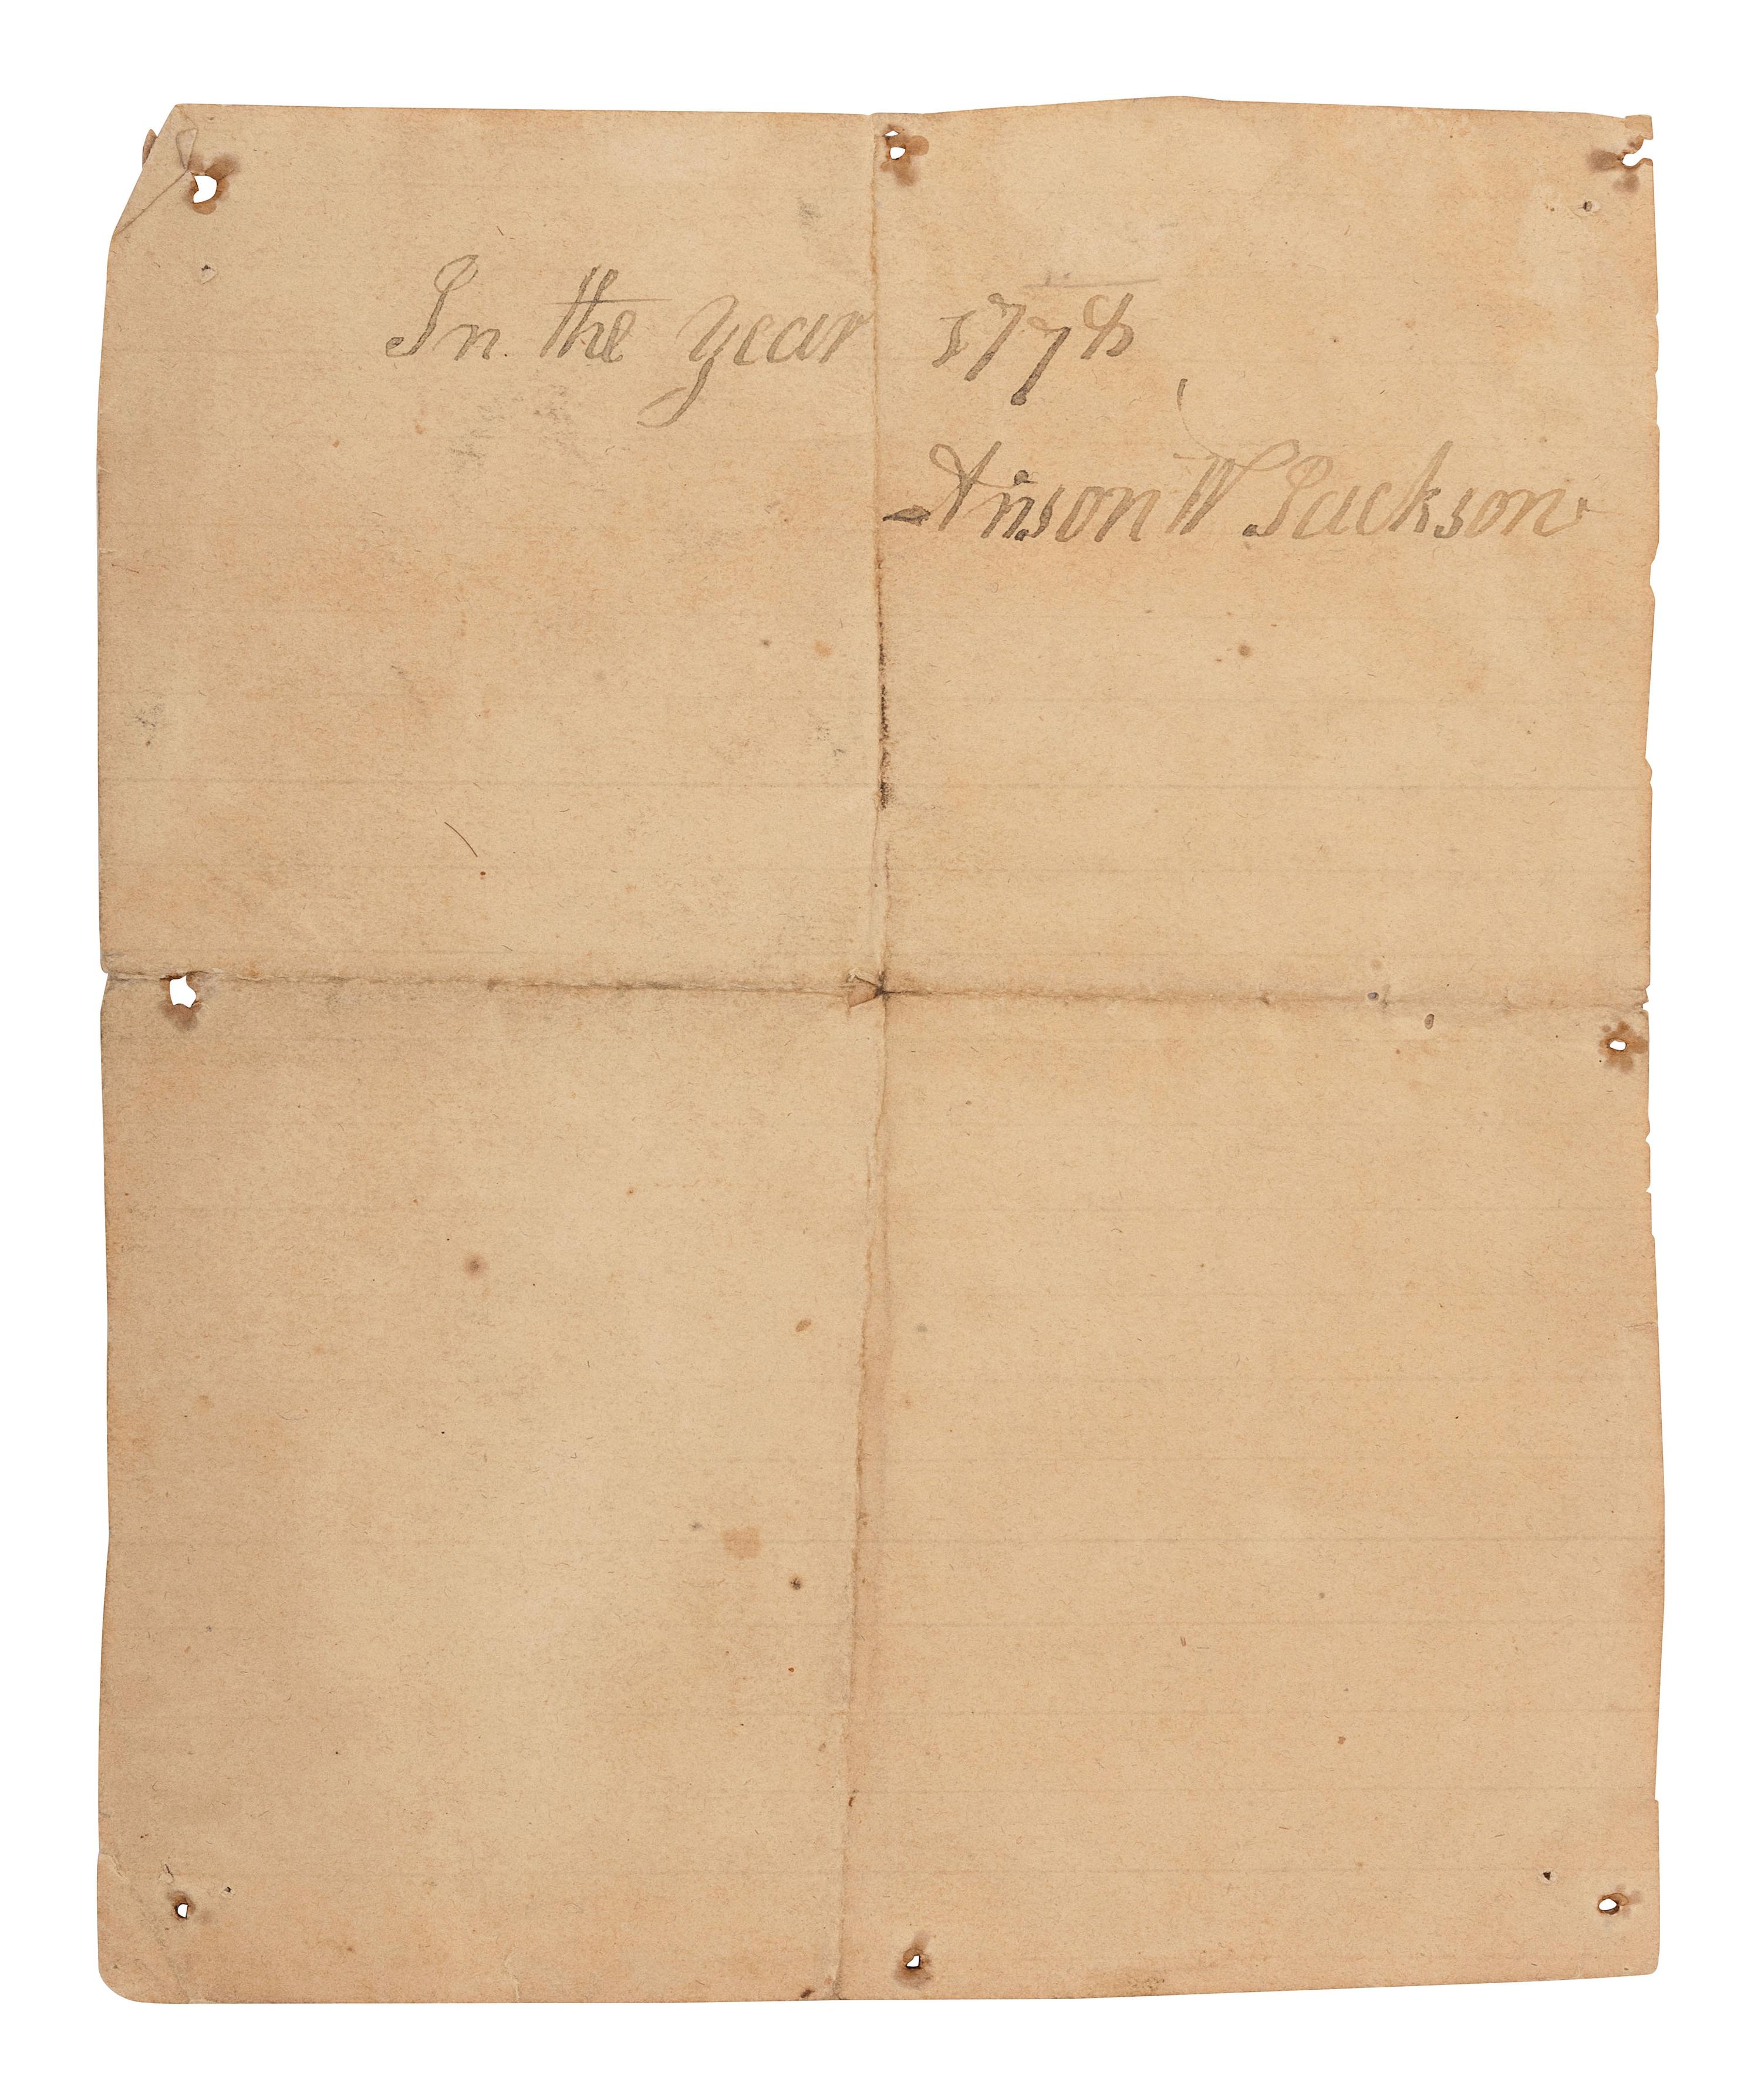 In the year 1778
Anson W Jackson